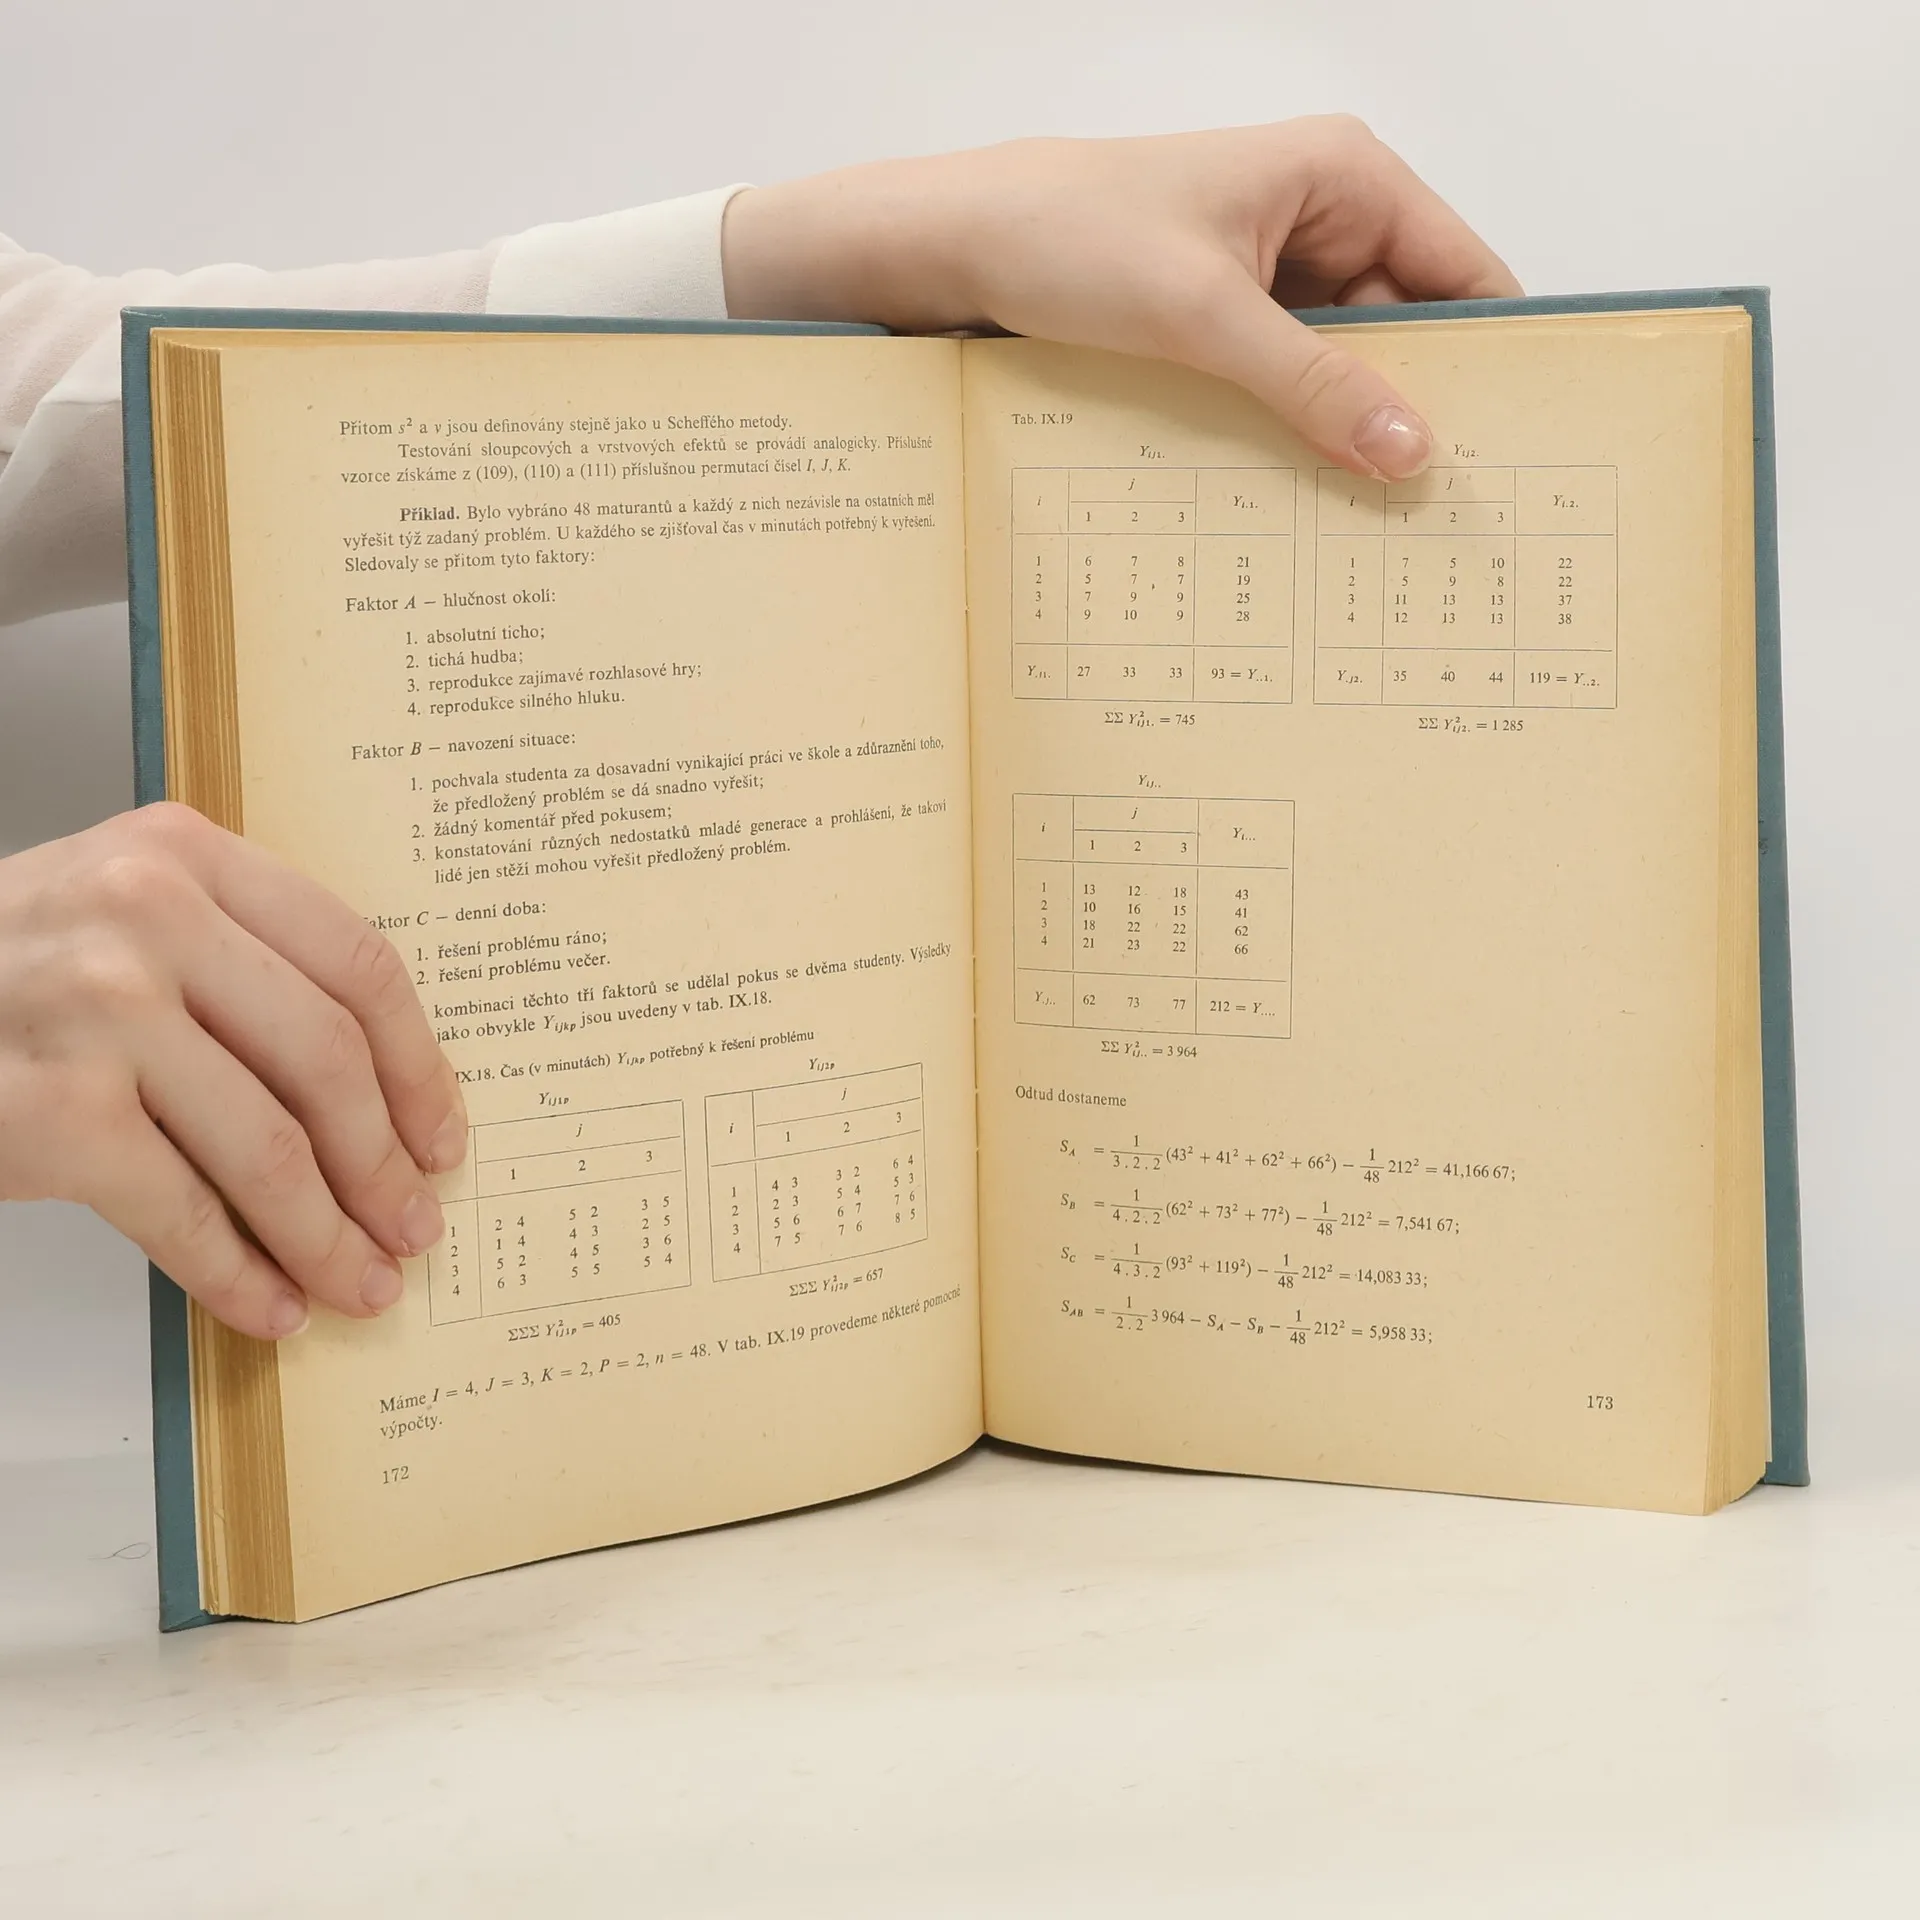 Přitom s² a ν jsou definovány stejně jako u Scheffého metody.
Testování sloupcových a vrstvových efektů se provádí analogicky. Příslušné
vzorce získáme z (109), (110) a (111) příslušnou permutací čísel I, J, K.
Příklad. Bylo vybráno 48 maturantů a každý z nich nezávisle na ostatních měl
vyřešit týž zadaný problém. U každého se zjišťoval čas v minutách potřebný k vyřešení.
Sledovaly se přitom tyto faktory:
Faktor A – hlučnost okolí:
1. absolutní ticho;
2. tichá hudba;
3. reprodukce zajímavé rozhlasové hry;
4. reprodukce silného hluku.
Faktor B – navození situace:
1. pochvala studenta za dosavadní vynikající práci ve škole a zdůraznění toho,
že předložený problém se dá snadno vyřešit;
2. žádný komentář před pokusem;
3. konstatování různých nedostatků mladé generace a prohlášení, že takoví
lidé jen stěží mohou vyřešit předložený problém.
aktor C – denní doba:
1. řešení problému ráno;
2. řešení problému večer.
kombinaci těchto tří faktorů se udělal pokus se dvěma studenty. Výsledky
jako obvykle Yijkp jsou uvedeny v tab. IX.18.
IX.18. Čas (v minutách) Yijkp potřebný k řešení problému
Yij1p
j
1 2 3
1 2 4 5 2 3 5
2 1 4 4 3 2 5
3 5 2 4 5 3 6
4 6 3 5 5 5 4
ΣΣΣ Y²ij1p = 405
Yij2p
i j
1 2 3
1 4 3 3 2 6 4
2 2 3 5 4 5 3
3 5 6 6 7 7 6
4 7 5 7 6 8 5
ΣΣΣ Y²ij2p = 657
Máme I = 4, J = 3, K = 2, P = 2, n = 48. V tab. IX.19 provedeme některé pomocné
výpočty.
172
Tab. IX.19
Yij1.
i j Yi.1.
1 2 3
1 6 7 8 21
2 5 7 7 19
3 7 9 9 25
4 9 10 9 28
Y.j1. 27 33 33 93 = Y..1.
ΣΣ Y²ij1. = 745
Yij2.
i j Yi.2.
1 2 3
1 7 5 10 22
2 5 9 8 22
3 11 13 13 37
4 12 13 13 38
Y.j2. 35 40 44 119 = Y..2.
ΣΣ Y²ij2. = 1 285
Yij..
i j Yi...
1 2 3
1 13 12 18 43
2 10 16 15 41
3 18 22 22 62
4 21 23 22 66
Y.j.. 62 73 77 212 = Y....
ΣΣ Y²ij.. = 3 964
Odtud dostaneme
SA = 1/(3 . 2 . 2) (43² + 41² + 62² + 66²) − 1/48 212² = 41,166 67;
SB = 1/(4 . 2 . 2) (62² + 73² + 77²) − 1/48 212² = 7,541 67;
SC = 1/(4 . 3 . 2) (93² + 119²) − 1/48 212² = 14,083 33;
SAB = 1/(2 . 2) 3 964 − SA − SB − 1/48 212² = 5,958 33;
173